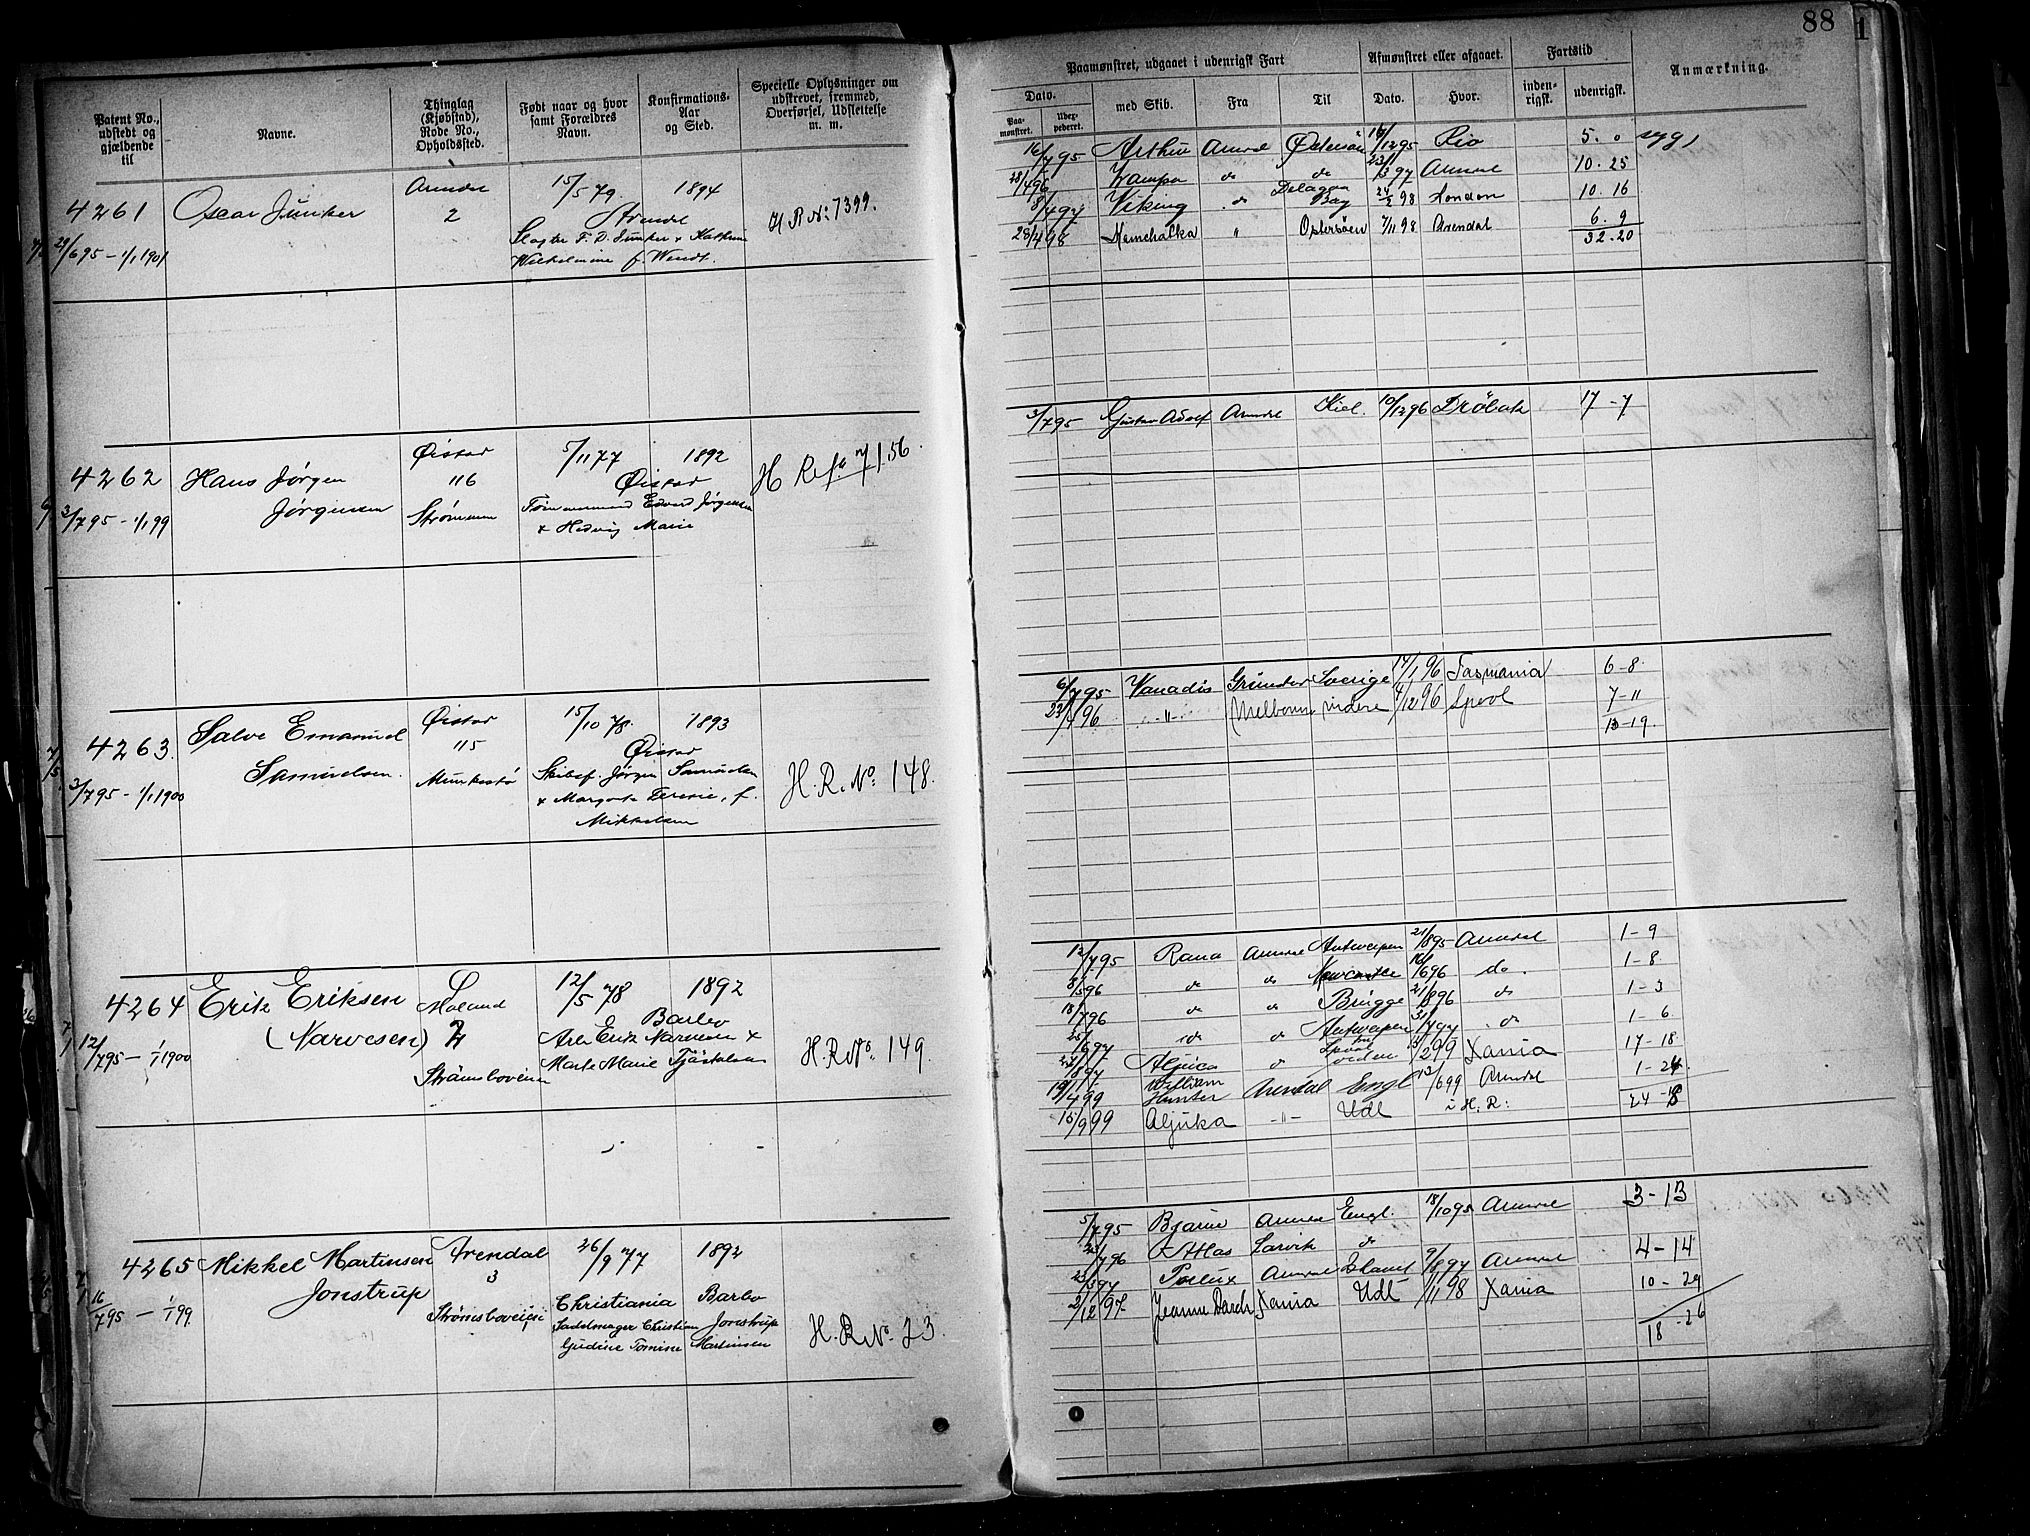 88
1
Patent No.,
udstedt og
gjældende
til
Navne.
Thinglag
(Kjøbstad),
Rode No.,
Opholdssted.
Født naar og hvor
samt Forældres
Navn.
Konfirmations-
Aar
og Sted.
Specielle Oplysninger om
udskrevet, fremmed,
Overførsel, Udslettelse
m. m.
Paamønstret, udgaaet i udenrigsk Fart
Afmønstret eller afgaaet.
Fartstid
Anmærkning.
Dato.
med Skib.
Fra
Til
Dato.
Hvor.
inden-
rigsk.
udenrigsk.
Paa-
mønstret.
Udex-
pederet.
4261 Oscar Junker
Arendal
2
15/5 79 1894
Arendal
Slagter F. D. Junker + Kathrine
Wilhelmine f. Wendt.
H R No: 7399.
29/6 95 – 1/1 1901
16/7 95 Arthur Arendal Østersøen 16/12 95 Rio 5. 0 syg,
28/4 96 Zampa do do 23/3 97 Arendal 10. 25
8/4 97 Viking do Delagoa Bay 24/2 98 London 10. 16
28/4 98 " Østersøen 7/11 98 Arendal 6. 9
32-20
4262 Hans Jørgen
Jørgensen
Øistad
116
Strømmen
5/11 77 1892
Øistad
Tømmermand Edvard Jørgensen
+ Hedvig Marie
156
3/7 95 – 1/1 99
3/7 95 Gustav Adolf Arendal Kiel. 10/12 96 Drøbak 17-7
4263. Salve Emanuel
Samuelsen.
Øistad
115
15/10 78. 1893
Øistad
Skibsf. Jørgen Samuelsen
+ Margrete Teresie, f.
Mikkelsen
H. R. No: 148.
3/7 95 – 1/1 1900
6/7 95 Vanadis Sverige 17/1 96 Tasmania 6-8
23/1 96 -"- Melbourn videre 4/12 96 Lpool 7-11
13-19.
4264 Erik Eriksen
(Narvesen)
Moland
2
Strømsboveien
12/5 78 1892
Barbo
Arb. Erik Narvesen +
Marte Marie Tjøstelsen
H. R No. 149.
12/7 95 – 1/1 1900
12/7 95 Rana Arendal Antwerpen 21/8 95 Arendal 1-9
8/5 96 do do Newcastle 16/6 96 do. 1-8
18/7 96 do do Brügge 21/8 96 do 1-3
25/6 97 do do Antwerpen 31/7 97 do 1-6
Aljuca do 2 99 Xania 17-18
19/4 99 William Hunter Arendal Engl 13/6 99 Arendal 1-24
15/9 99 Aljuka -"- Udl i H. R: 24-8
4265 Mikkel Martinsen
Jonstrup
Arendal
3
Strømsboveien
26/9 77 1892
Christiania Barbo
Sadelmager Christian Jonstrup
Gudine Tomine Martinsen
H. R No. 23.
16/7 95 – 1/1 99.
5/7 95 Bjarne Arendal Engl. 18/10 95 Arendal 3-13
7 96 Atlas Larvik do
23/3 97 Pollux Arendal 9/8 97 Arendal 4-14
2/12 97. Jeanne Darch Xania Udl 1/11 98 Xania 10-29
18-26